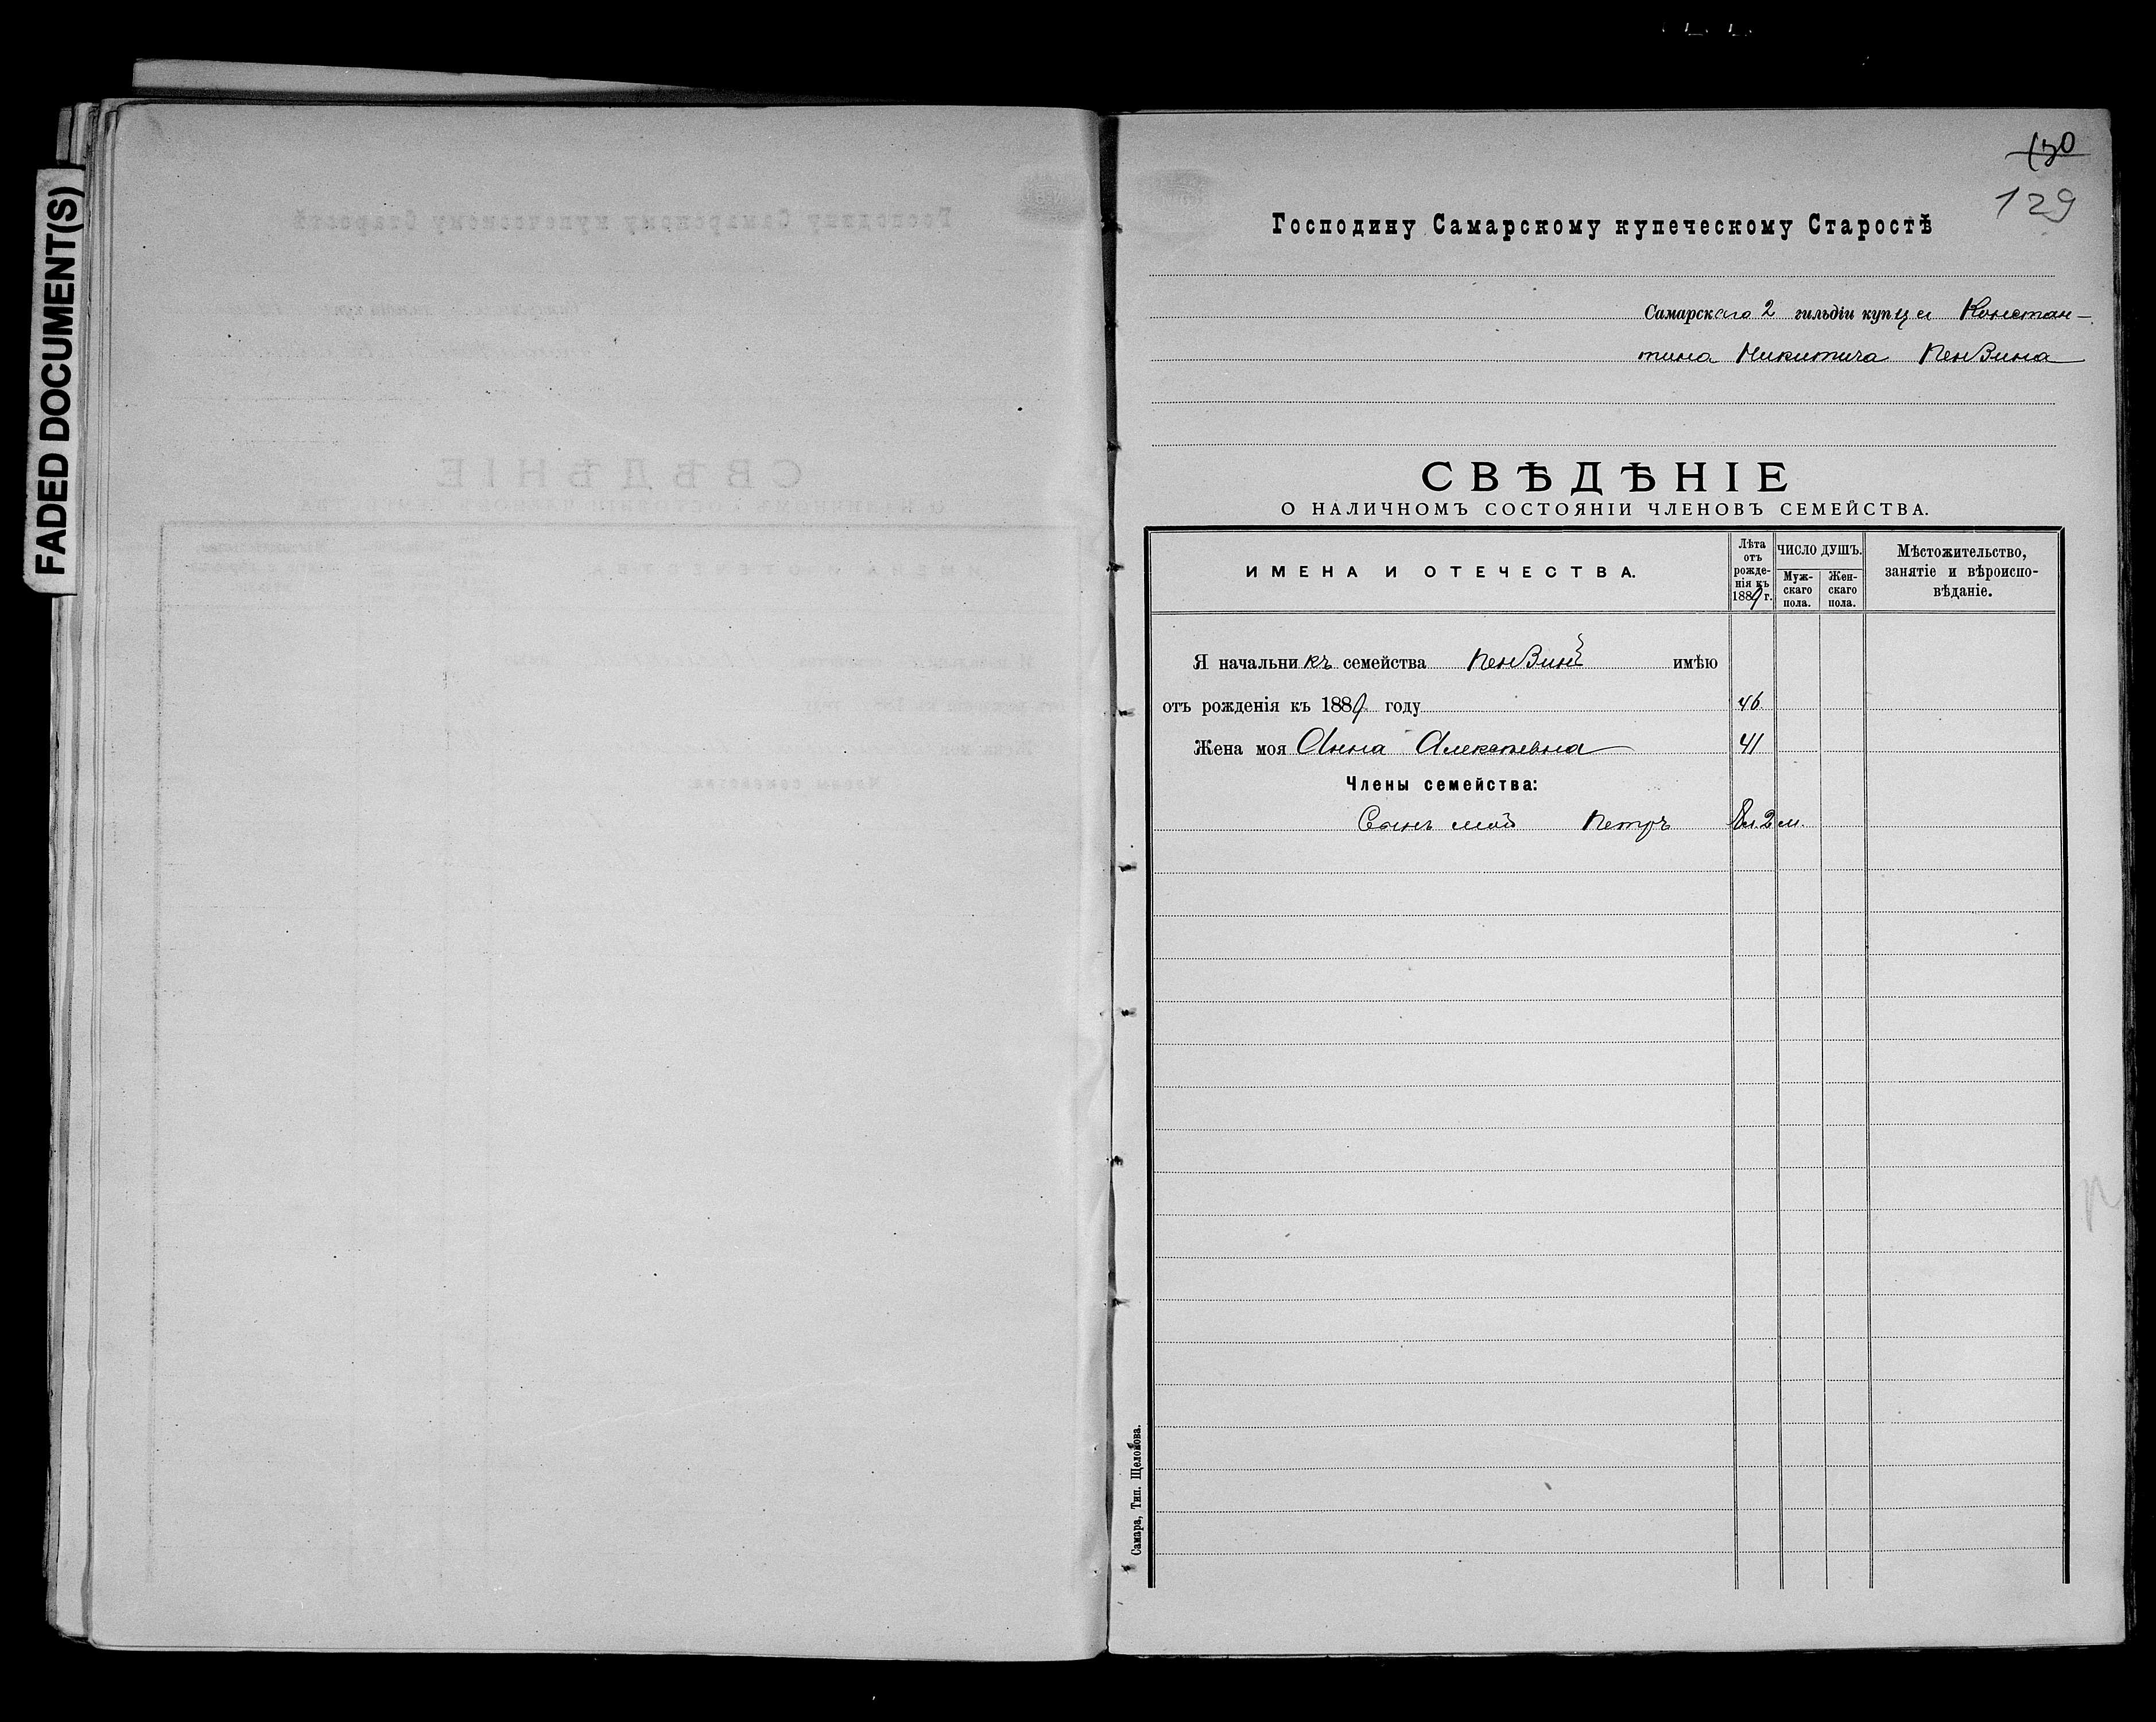 FADED DOCUMENT(S)
129
Господину Самарскому купеческому Старостѣ
Самарскаго 2 гильдіи купца Констан-
тина Никитича Пензина
СВѢДѢНІЕ
О НАЛИЧНОМЪ СОСТОЯНІИ ЧЛЕНОВЪ СЕМЕЙСТВА.
ИМЕНА И ОТЕЧЕСТВА.
Лѣта
отъ
рожде-
нія къ
1889 г.
ЧИСЛО ДУШЪ.
Муж-
скаго
пола.
Жен-
скаго
пола.
Мѣстожительство,
занятіе и вѣроиспо-
вѣданіе.
Я начальникъ семейства Пензинъ имѣю
отъ рожденія къ 1889 году 46
Жена моя Анна Алексѣевна 41
Члены семейства:
Сынъ мой Петръ 8 л. 2 м.
Самара, Тип. Щелокова.